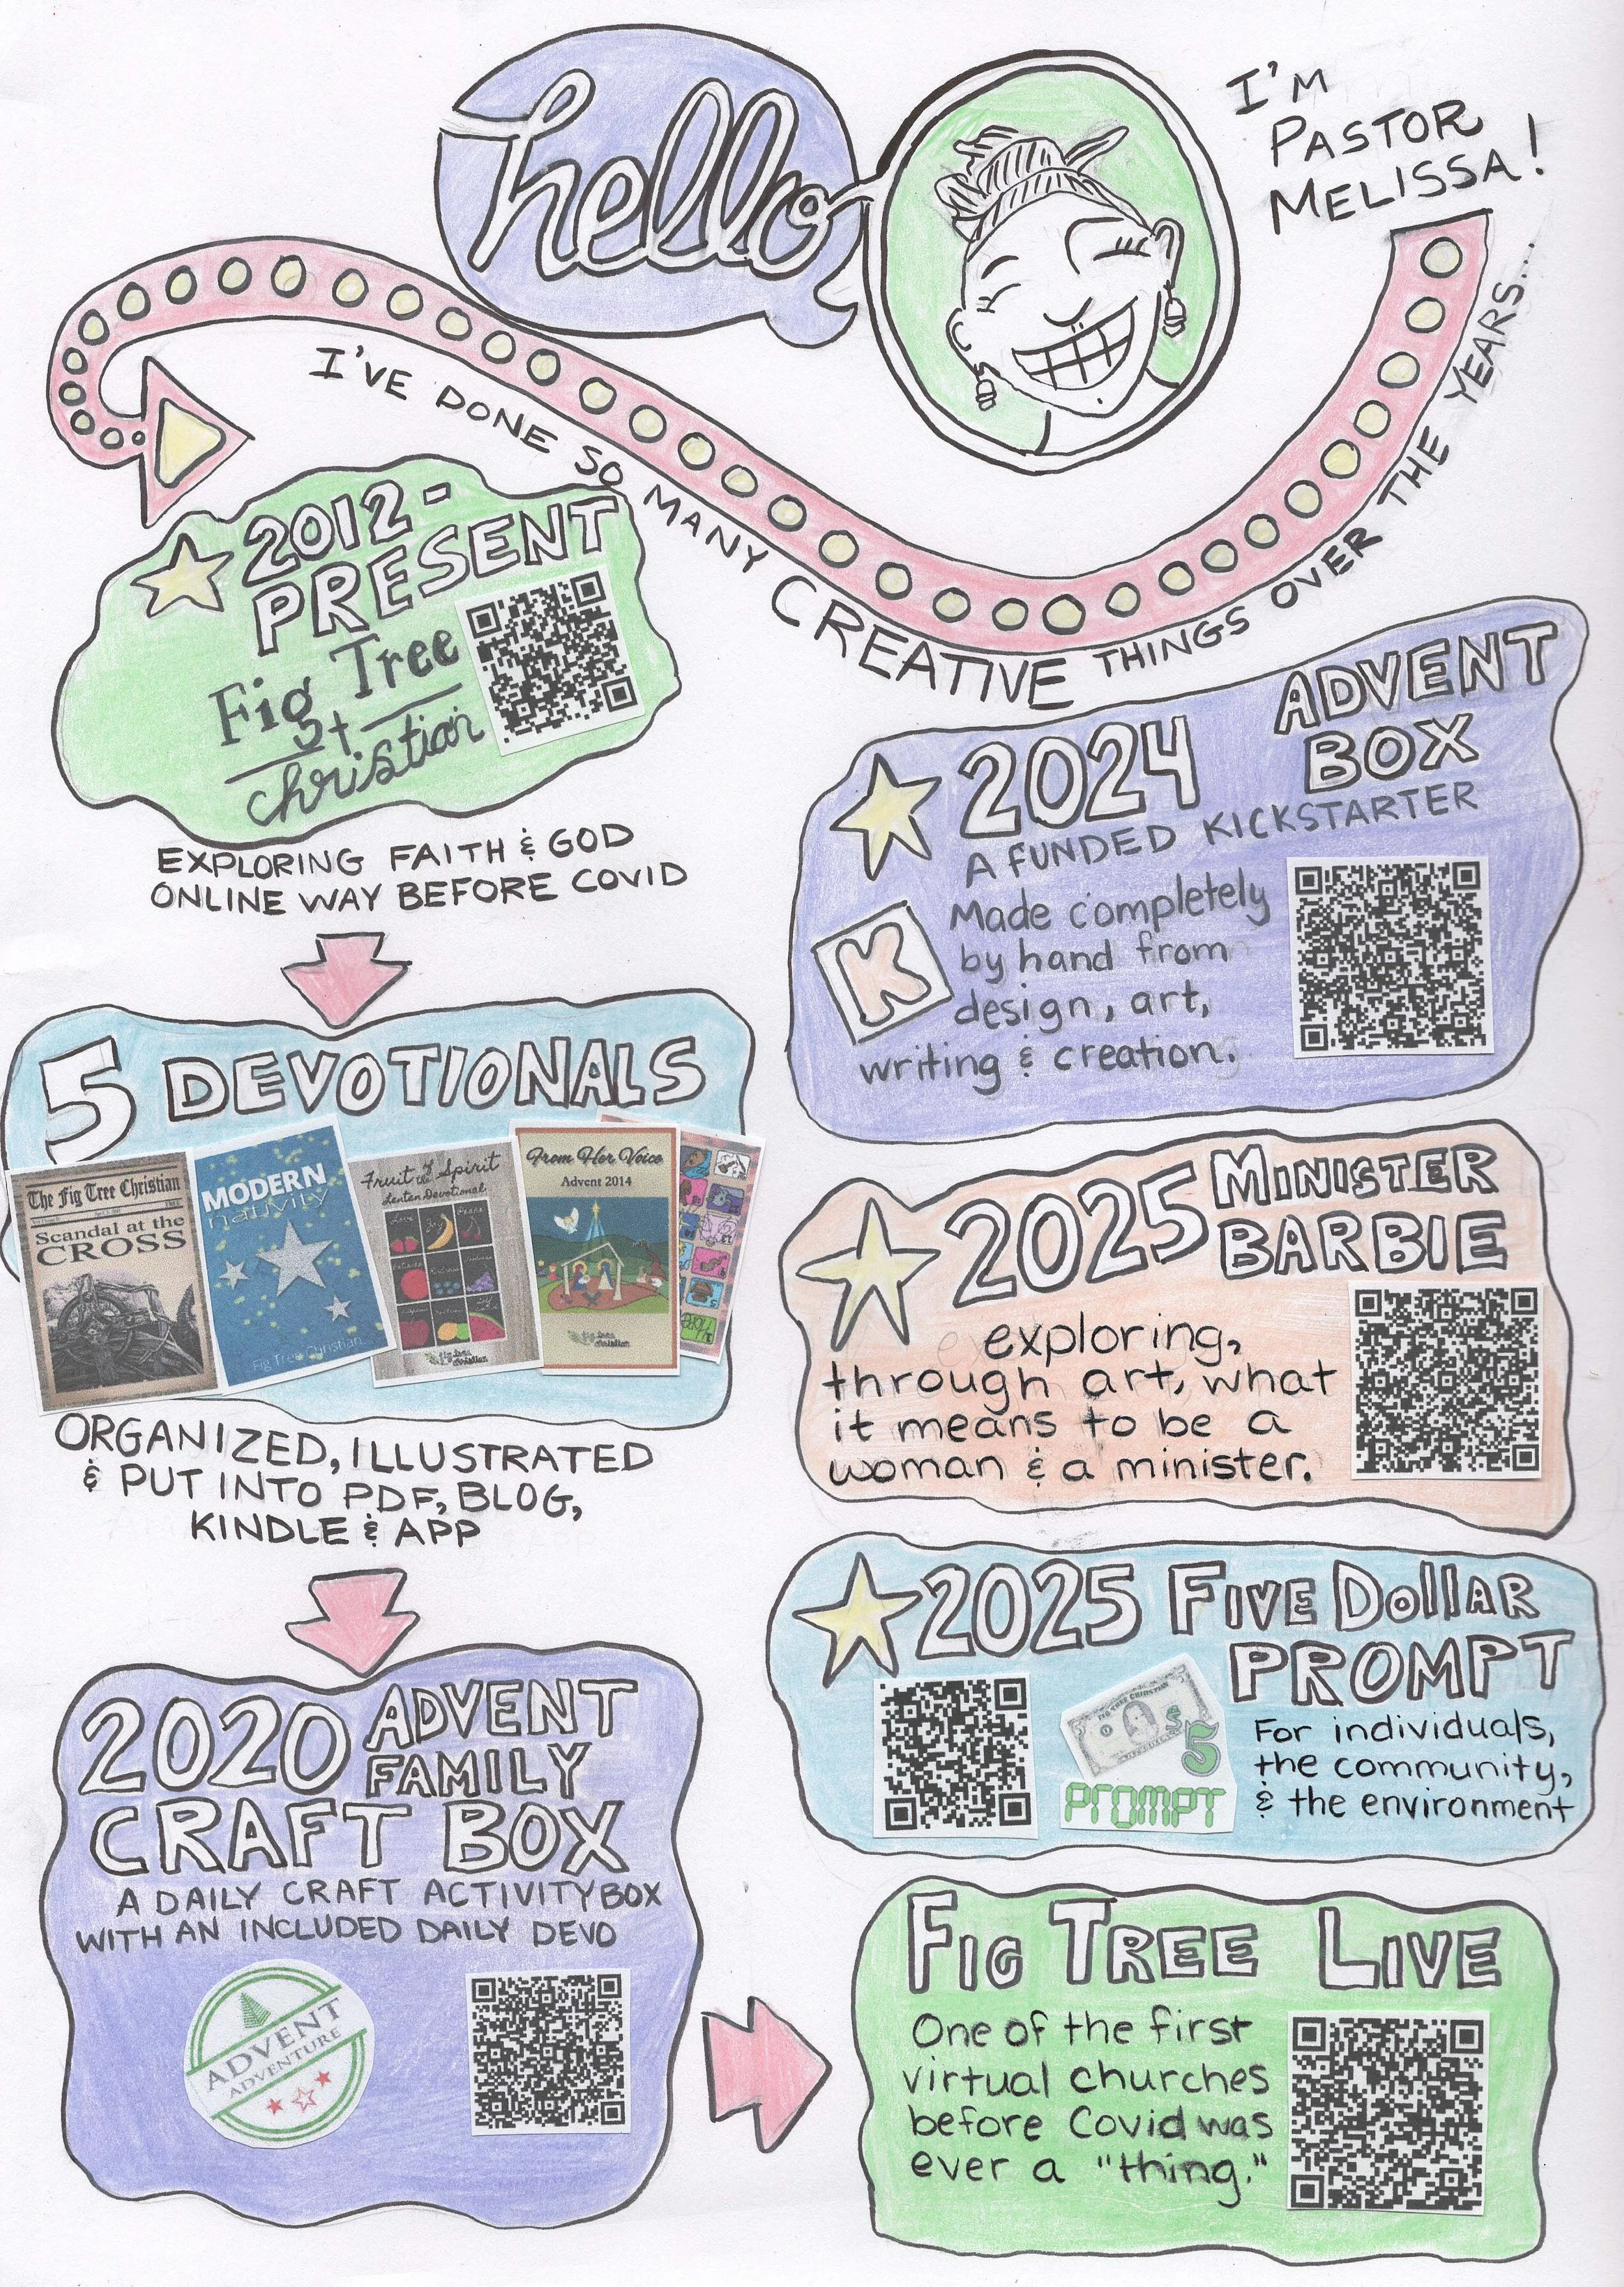 hello
I'M
PASTOR
MELISSA!
I'VE DONE SO MANY CREATIVE THINGS OVER THE YEARS...
2012-
PRESENT
Fig Tree
Christian
EXPLORING FAITH & GOD
ONLINE WAY BEFORE COVID
5 DEVOTIONALS
The Fig Tree Christian
Scandal at the
CROSS
MODERN
nativity
Fig Tree Christian
Fruit of the Spirit
Lenten Devotional
Love
Joy
Peace
fig tree
christian
From Her Voice
Advent 2014
fig tree
christian
ORGANIZED, ILLUSTRATED
& PUT INTO PDF, BLOG,
KINDLE & APP
2020 ADVENT
FAMILY
CRAFT BOX
A DAILY CRAFT ACTIVITY BOX
WITH AN INCLUDED DAILY DEVO
ADVENT
ADVENTURE
2024 ADVENT
BOX
A FUNDED KICKSTARTER
K
Made completely
by hand from
design, art,
writing & creation.
2025 MINISTER
BARBIE
exploring,
through art, what
it means to be a
woman & a minister.
2025 FIVE DOllAR
PROMPT
FIG TREE CHRISTIAN
$5
PROMPT
For individuals,
the community,
& the environment
FIG TREE LIVE
One of the first
virtual churches
before Covid was
ever a "thing."